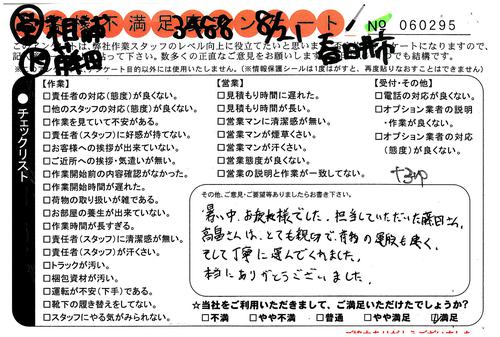 不満足
8/21
No 060295
春日井市
このアンケートは、弊社作業スタッフのレベル向上に役立てたいと思います
数多くの正直なご意見をお願いします。
でも結構です。
アンケート目的以外には使用いたしません。(※情報保護シールは1度はがすと、再度貼りなおすことはできません)
チェックリスト
【作業】
□責任者の対応(態度)が良くない。
□他のスタッフの対応(態度)が良くない。
□作業を見ていて不安がある。
□責任者(スタッフ)に好感が持てない。
□お客様への挨拶が出来ていない。
□ご近所への挨拶・気遣いが無い。
□作業開始前の内容確認がなかった。
□作業開始時間が遅れた。
□荷物の取り扱いが雑である。
□お部屋の養生が出来ていない。
□作業時間が長すぎる。
□責任者(スタッフ)に清潔感が無い。
□責任者(スタッフ)が汗くさい。
□トラックが汚い。
□梱包資材が汚い。
□運転が不安(下手)である。
□靴下の履き替えをしてない。
□スタッフにやる気がみられない。
【営業】
□見積もり時間に遅れた。
□見積もり時間が長い。
□営業マンに清潔感が無い。
□営業マンが煙草くさい。
□営業マンが汗くさい。
□営業態度が良くない。
□営業の説明と作業が一致してない。
【受付・その他】
□電話の対応が良くない。
□オプション業者の説明・作業が良くない。
□オプション業者の対応(態度)が良くない。
その他、ご意見・ご要望等ありましたらお書き下さい。
暑い中、お疲れ様でした。担当していただいた藤田さん、
高畠さんは、とても親切で、荷物の運搬も速く、
そして丁寧に運んでくれました。
本当にありがとうございました。
☆当社をご利用いただきまして、ご満足いただけたでしょうか?
□不満 □やや不満 □普通 □やや満足 ☑満足